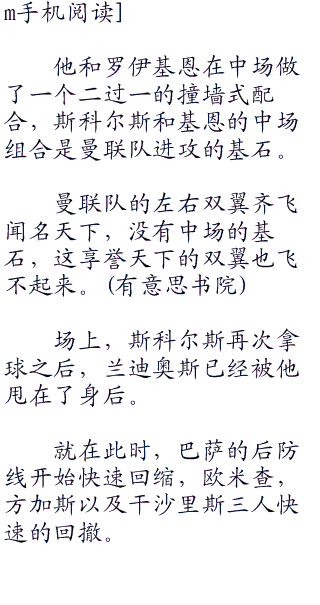 m手机阅读]
他和罗伊基恩在中场做
了一个二过一的撞墙式配
合，斯科尔斯和基恩的中场
组合是曼联队进攻的基石。
曼联队的左右双翼齐飞
闻名天下，没有中场的基
石，这享誉天下的双翼也飞
不起来。(有意思书院)
场上，斯科尔斯再次拿
球之后，兰迪奥斯已经被他
甩在了身后。
就在此时，巴萨的后防
线开始快速回缩，欧米查，
方加斯以及干沙里斯三人快
速的回撤。